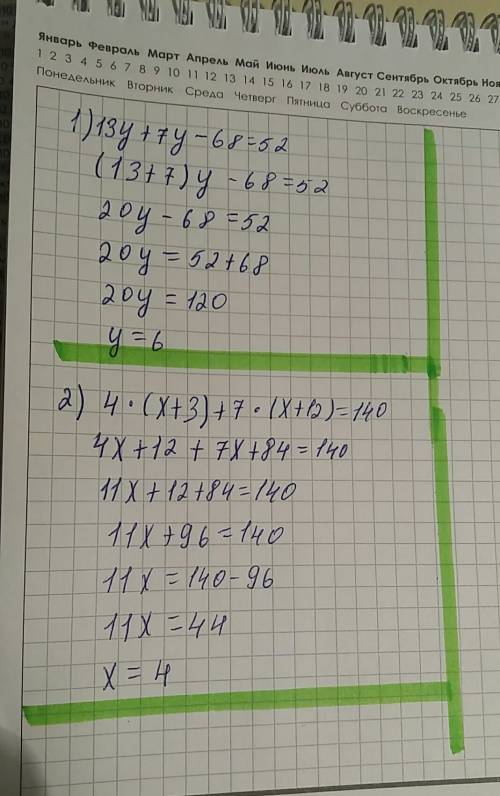 Январь Февраль Март Апрель Май Июнь Июль Август Сентябрь Октябрь Ноя
1 2 3 4 5 6 7 8 9 10 11 12 13 14 15 16 17 18 19 20 21 22 23 24 25 26 27
Понедельник Вторник Среда Четверг Пятница Суббота Воскресенье
1) 13y + 7y - 68 = 52
(13 + 7) y - 68 = 52
20y - 68 = 52
20y = 52 + 68
20y = 120
y = 6
2) 4 · (x + 3) + 7 · (x + 12) = 140
4x + 12 + 7x + 84 = 140
11x + 12 + 84 = 140
11x + 96 = 140
11x = 140 - 96
11x = 44
x = 4